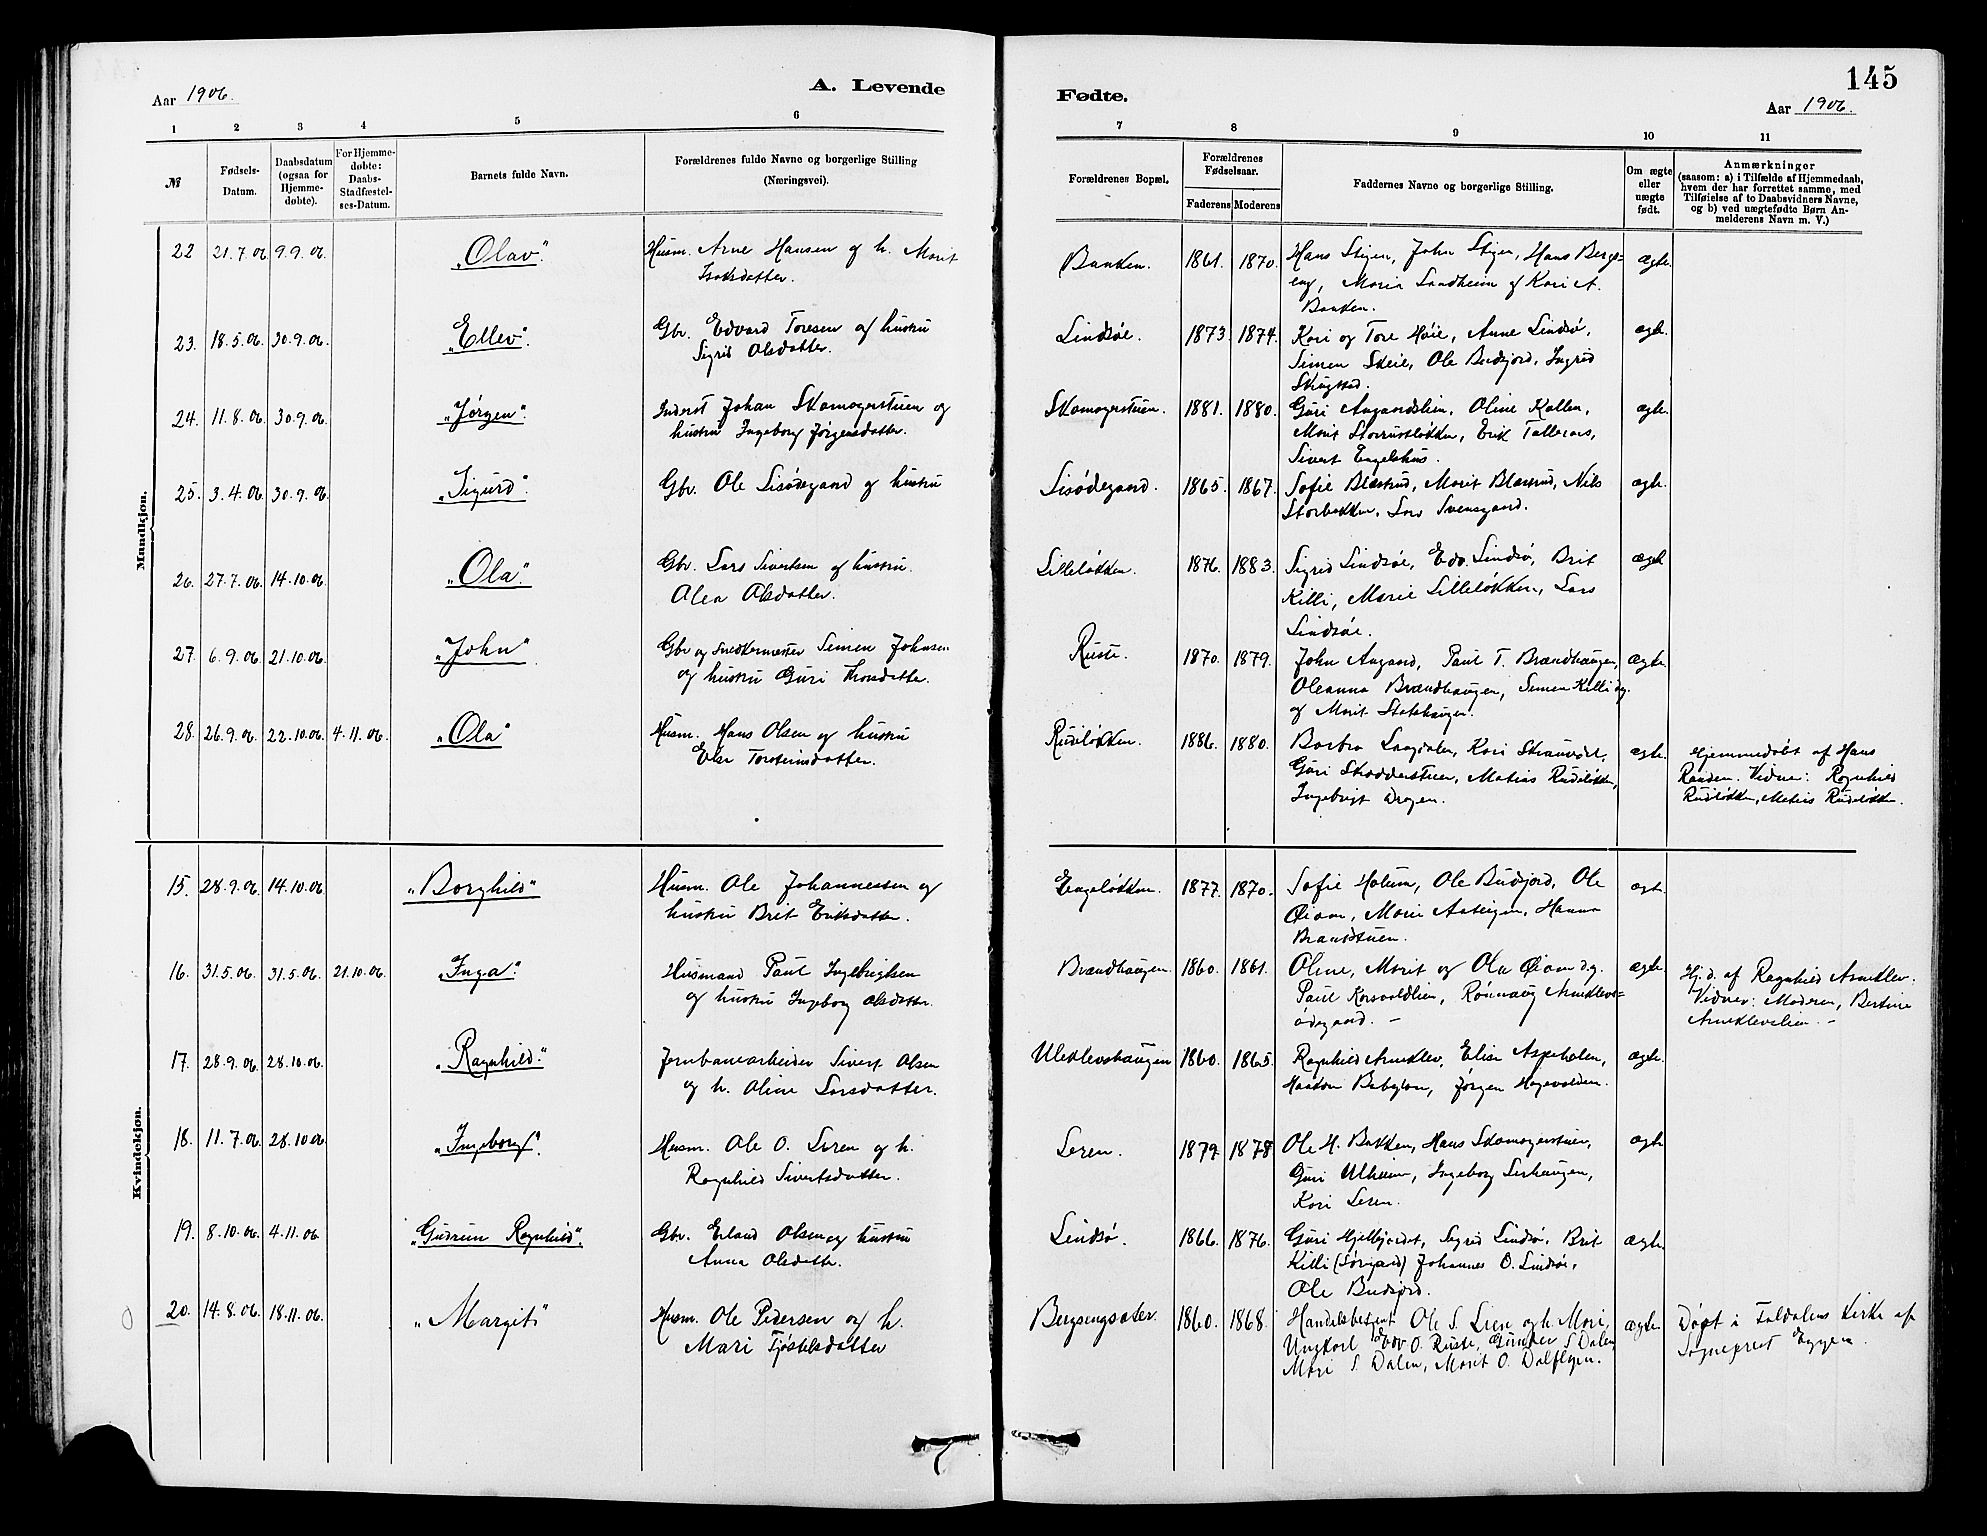 145
Aar 1906.
A. Levende
Fødte.
Aar 1906.
1 2 3 4 5 6 7 8 9 10 11
№
Fødsels-
Datum.
Daabsdatum
(ogsaa for
Hjemme-
døbte).
For Hjemme-
døbte:
Daabs-
Stadfæstel-
ses-Datum.
Barnets fulde Navn.
Forældrenes fulde Navne og borgerlige Stilling
(Næringsvei).
Forældrenes Bopæl.
Forældrenes
Fødselsaar.
Faderens Moderens
Faddernes Navne og borgerlige Stilling.
Om ægte
eller
uægte
født.
Anmærkninger
(saasom: a) i Tilfælde af Hjemmedaab,
hvem der har forrettet samme, med
Tilføielse af to Daabsvidners Navne,
og b) ved uægtefødte Børn An-
melderens Navn m. V.)
Mandkjøn.
22 21.7.06 9.9.06. "Olav". Husm. Arne Hansen og h. Marit
Isaksdatter.
Bakken. 1861. 1870. Hans Stigen, John Stigen, Hans Bergs=
eng, Maria Sandheim og Kari A.
Bakken.
ægte.
23. 18.5.06. 30.9.06. "Ellev". Gbr. Edvard Toresen og hustru
Sigrid Olsdatter.
Lindsøe. 1873. 1874. Kari og Tore Høie, Anne Lindsø,
Simen Skeie, Ole Budsjord, Ingrid
Skugstad.
ægte.
24. 11.8.06. 30.9.06. "Jørgen". Inderst Johan Skomagerstuen og
hustru Ingeborg Jørgensdatter.
Skomagerstuen. 1881. 1880. Guri Angaardslien, Oline Kollen,
Marit Storrustløkken, Erik Talleraas,
Sivert Engelshus.
ægte.
25. 3.4.06. 30.9.06. "Sigurd". Gbr. Ole Lisødegaard og hustru
Lisødegaard. 1865. 1867. Sofie Blæstrud, Marit Blæstrud, Nils
Storbakken, Lars Svensgaard.
ægte.
26. 27.7.06. 14.10.06. "Ola". Gbr. Lars Sivertsen og hustru.
Alea Olsdatter.
Lilleløkken. 1876. 1883. Sigrid Lindsøe, Edv. Lindsø, Brit
Killi, Marie Lilleløkken, Lars
Lindsøe.
ægte
27. 6.9.06. 21.10.06. "John". Gbr og snedkermester Simen Johnsen
og hustru Guri Thorsdatter.
Ruste. 1870. 1879. John Angard, Paul T. Brændhaugen,
Oleanna Brændhaugen, Simen Killi dg.
og Marit Slatshaugen.
ægte.
28. 26.9.06. 22.10.06. 4.11.06. "Ola" Husm. Hans Olsen og hustru
Else Torsteinsdatter.
Rudiløkken. 1886. 1880. Barbra Laagdalen, Kari
Guri Skredderstuen, Mathias Rudiløkken,
Ingebrigt Dragen.
ægte. Hjemmedøbt af Hans
Randen. Vidner: Ragnhild
Rudiløkken, Mathis Rudiløkken.
Kvindekjøn.
15. 28.9.06. 14.10.06 "Borghild" Husm. Ole Johannessen og
hustru Brit Eriksdatter.
Engeløkken. 1877. 1870. Sofie Holum, Ole Budsjord, Ole
Øiom, Marie Aasteigen, Hanna
Brandstuen.
ægt.
16. 31.5.06. 31.5.06. 21.10.06. "Inga". Husmand Paul Ingebrigtsen
og hustru Ingeborg Olsdatter.
Brændhaugen. 1860. 1861. Oline, Marit og Ola Øiom dg.
Paul Korsvoldlien, Rønnaug Arneklevs=
ødegaard. —
ægte. Hj.d. af Ragnhild Arneklev.
Vidner: Moderen, Bertine
Arneklevslien. —
17. 28.9.06. 28.10.06. "Ragnhild". Jernbanearbeider Sivert Olsen
og h. Oline Larsdatter.
Uleklevshaugen 1860. 1865. Ragnhild Arneklev, Elise Aspeholen,
Haakon Babylon, Jørgen Hagevolden.
ægte.
18. 11.7.06. 28.10.06 "Ingeborg". Husm. Ole O. Leren og h.
Ragnhild Sivertsdatter.
Leren. 1879. 1878 Ole H. Bakken, Hans Skomagerstuen,
Guri Ulheim, Ingeborg Lerhaugen,
Kari Leren.
ægte.
19. 8.10.06. 4.11.06 "Gudrun Ragnhild". Gbr. Erland Olsen og hustru
Anna Olsdatter.
Lindsø. 1866. 1876. Guri Hjelkjordet, Sigrid Lindsø, Brit
Killi (Sørgard) Johannes O. Lindsøe,
Ole Budsjord.
ægte.
20. 14.8.06. 18.11.06. "Margit" Husm. Ole Pedersen og h.
Mari Tjøstelsdatter
Bergsengsæter. 1860. 1868. Handelsbetjent Ole S. Lien og h. Mari,
Ungkarl Edv O. Ruste, S Dalen
Mari S. Dalen, Marit O. Dalflyen.
ægte. Døpt i Foldalens Kirke af
Sogneprest Eggen.